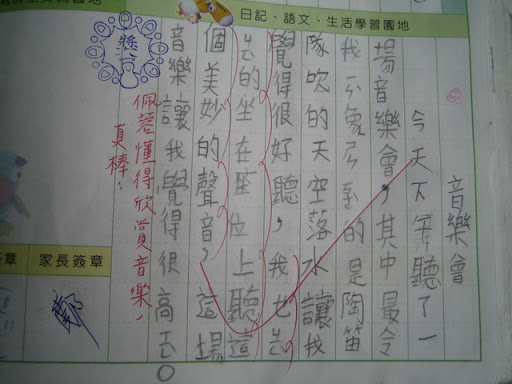 日記、語文、生活學習園地
園地
音樂會
今天下午聽了一
場音樂會，其中最令
我象的是陶笛
隊吹的天空落水讓我
覺得很好聽，我也
的坐在位上聽這
個美妙的聲音，這場
音樂讓我覺得很高。
佩蓉懂得欣賞音樂，
真棒！
獎
家長簽章
章